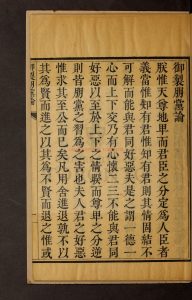 御製朋黨論
朕惟天尊地卑而君臣之分定為人臣者
義當惟知有君惟知有君則其情固結不
可解而能與君同好惡夫是之謂一德一
心而上下交乃有心懷二三不能與君同
好惡以至於上下之情睽而尊卑之分逆
則皆朋黨之習為之害也夫人君之好惡
惟求其至公而已矣凡用舍進退孰不以
其為賢而進之以其為不賢而退之惟或